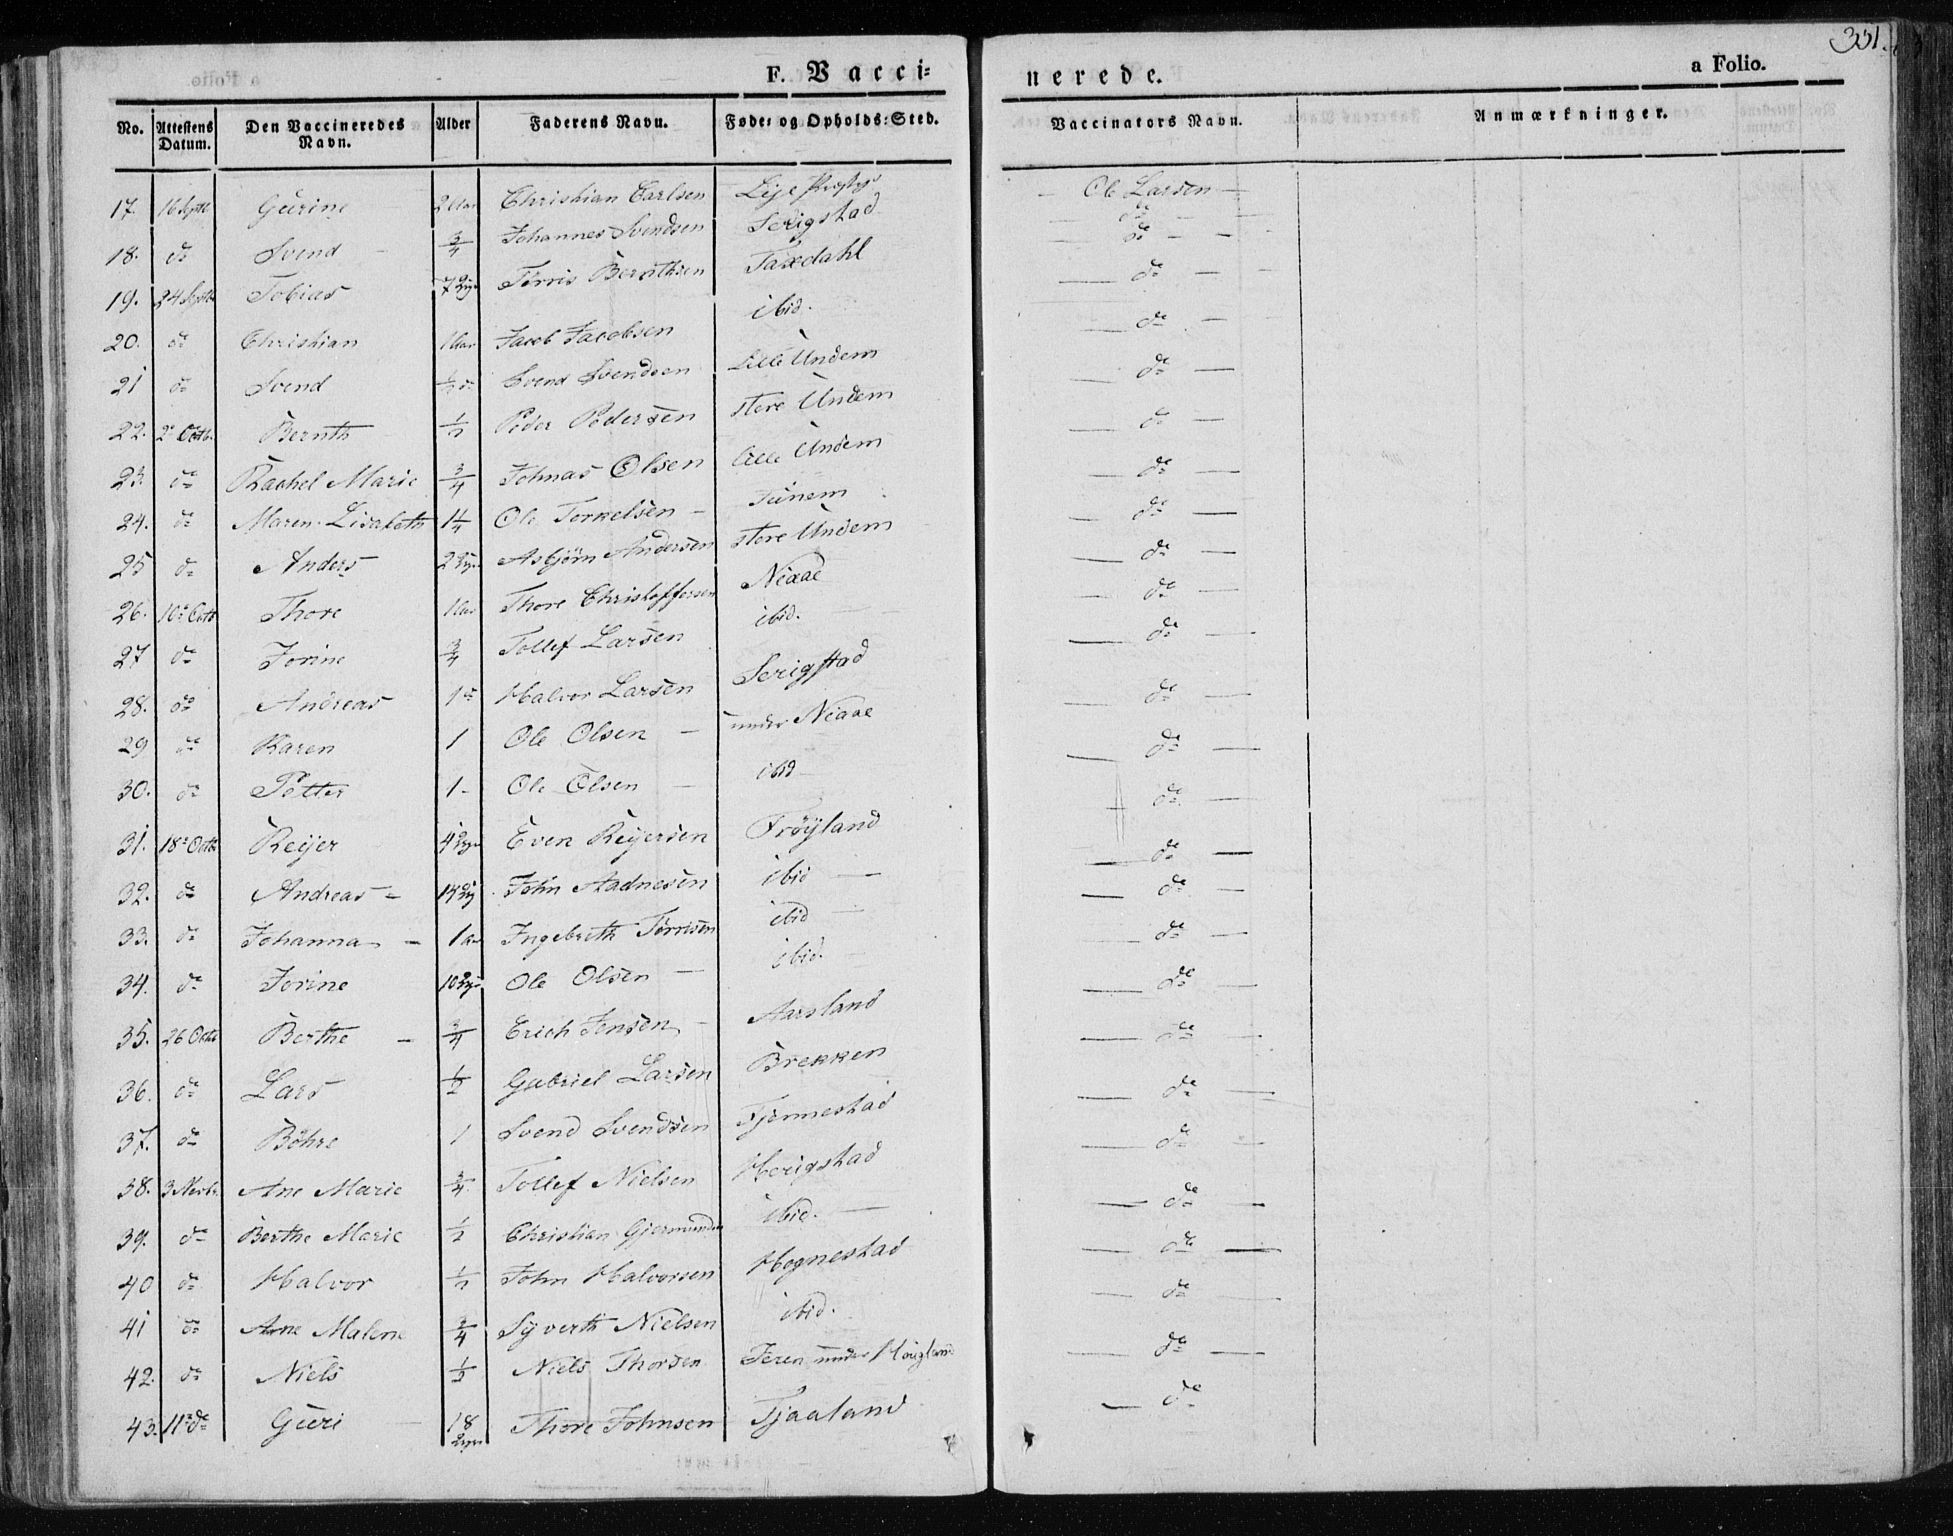 351.
F. Vacci=
nerede.
a Folio.
No. Attestens Datum. Den Vaccineredes Navn. Alder Faderens Navn. Føde- og Opholds-Sted. Vaccinators Navn. Anmærkninger.
17. 16 Septb Gurine 2 Aar Christian Carlsen Lye Ole Larsen
18. do Svend 3/4 Johannes Svendsen Serigstad do
19. 24 Septb Tobias 7 Tørris Bernthsen Taxdahl do
20. do Christian 1 Aar Jacob Jacobsen ibid. do
21 do Svend 1/2 do Svend Svendsen Lille Undem do
22. 2 Octb. Bernth 1/2 Peder Pedersen store Undem do
23. do Rachel Marie 3/4 Johnas Olsen lille Undem do
24. do Maren Lisabeth 1 1/4 Ole Torkelsen Tunem do
25 do Anders 2 Asbjörn Andersen store Undem do
26. 10 Octb Thore 1 Aar Thore Christoffersen Niaae do
27 do Jorine 3/4 Tollef Larsen ibid. do
28. do Andreas 1 do Halvor Larsen Serigstad do
29 do Karen 1 Ole Olsen under Niaae do
30. do Petter 1 Ole Olsen ibid do
31. 18 Octb Reijer 4 Even Reijersen Frøyland do
32. do Andreas 14 John Aadnesen ibid do
33. do Johanna 1 Aar Ingebreth Tørrisen ibid do
34. do Jorine 10 Ole Olsen ibid. do
35. 26 Octb Berthe 3/4 Erich Jensen Aarsland do
36. do Lars 1/2 Gabriel Larsen Brekken do
37. do Böhre 1 Svend Svendsen Tjennestad do
38. 3 Novbr. Ane Marie 3/4 Tollef Nielsen Herigstad do
39. do Berthe Marie 1/2 Christian Gjermunds ibid. do
40 do Halvor 1/2 John Halvorsen Hognestad do
41 do Ane Malene 3/4 Syverth Nielsen ibid. do
42. do Niels 1/2 Niels Thorsen Jeren under Hougland do
43. 11 do Guri 18 Thore Johnsen Tjaaland do